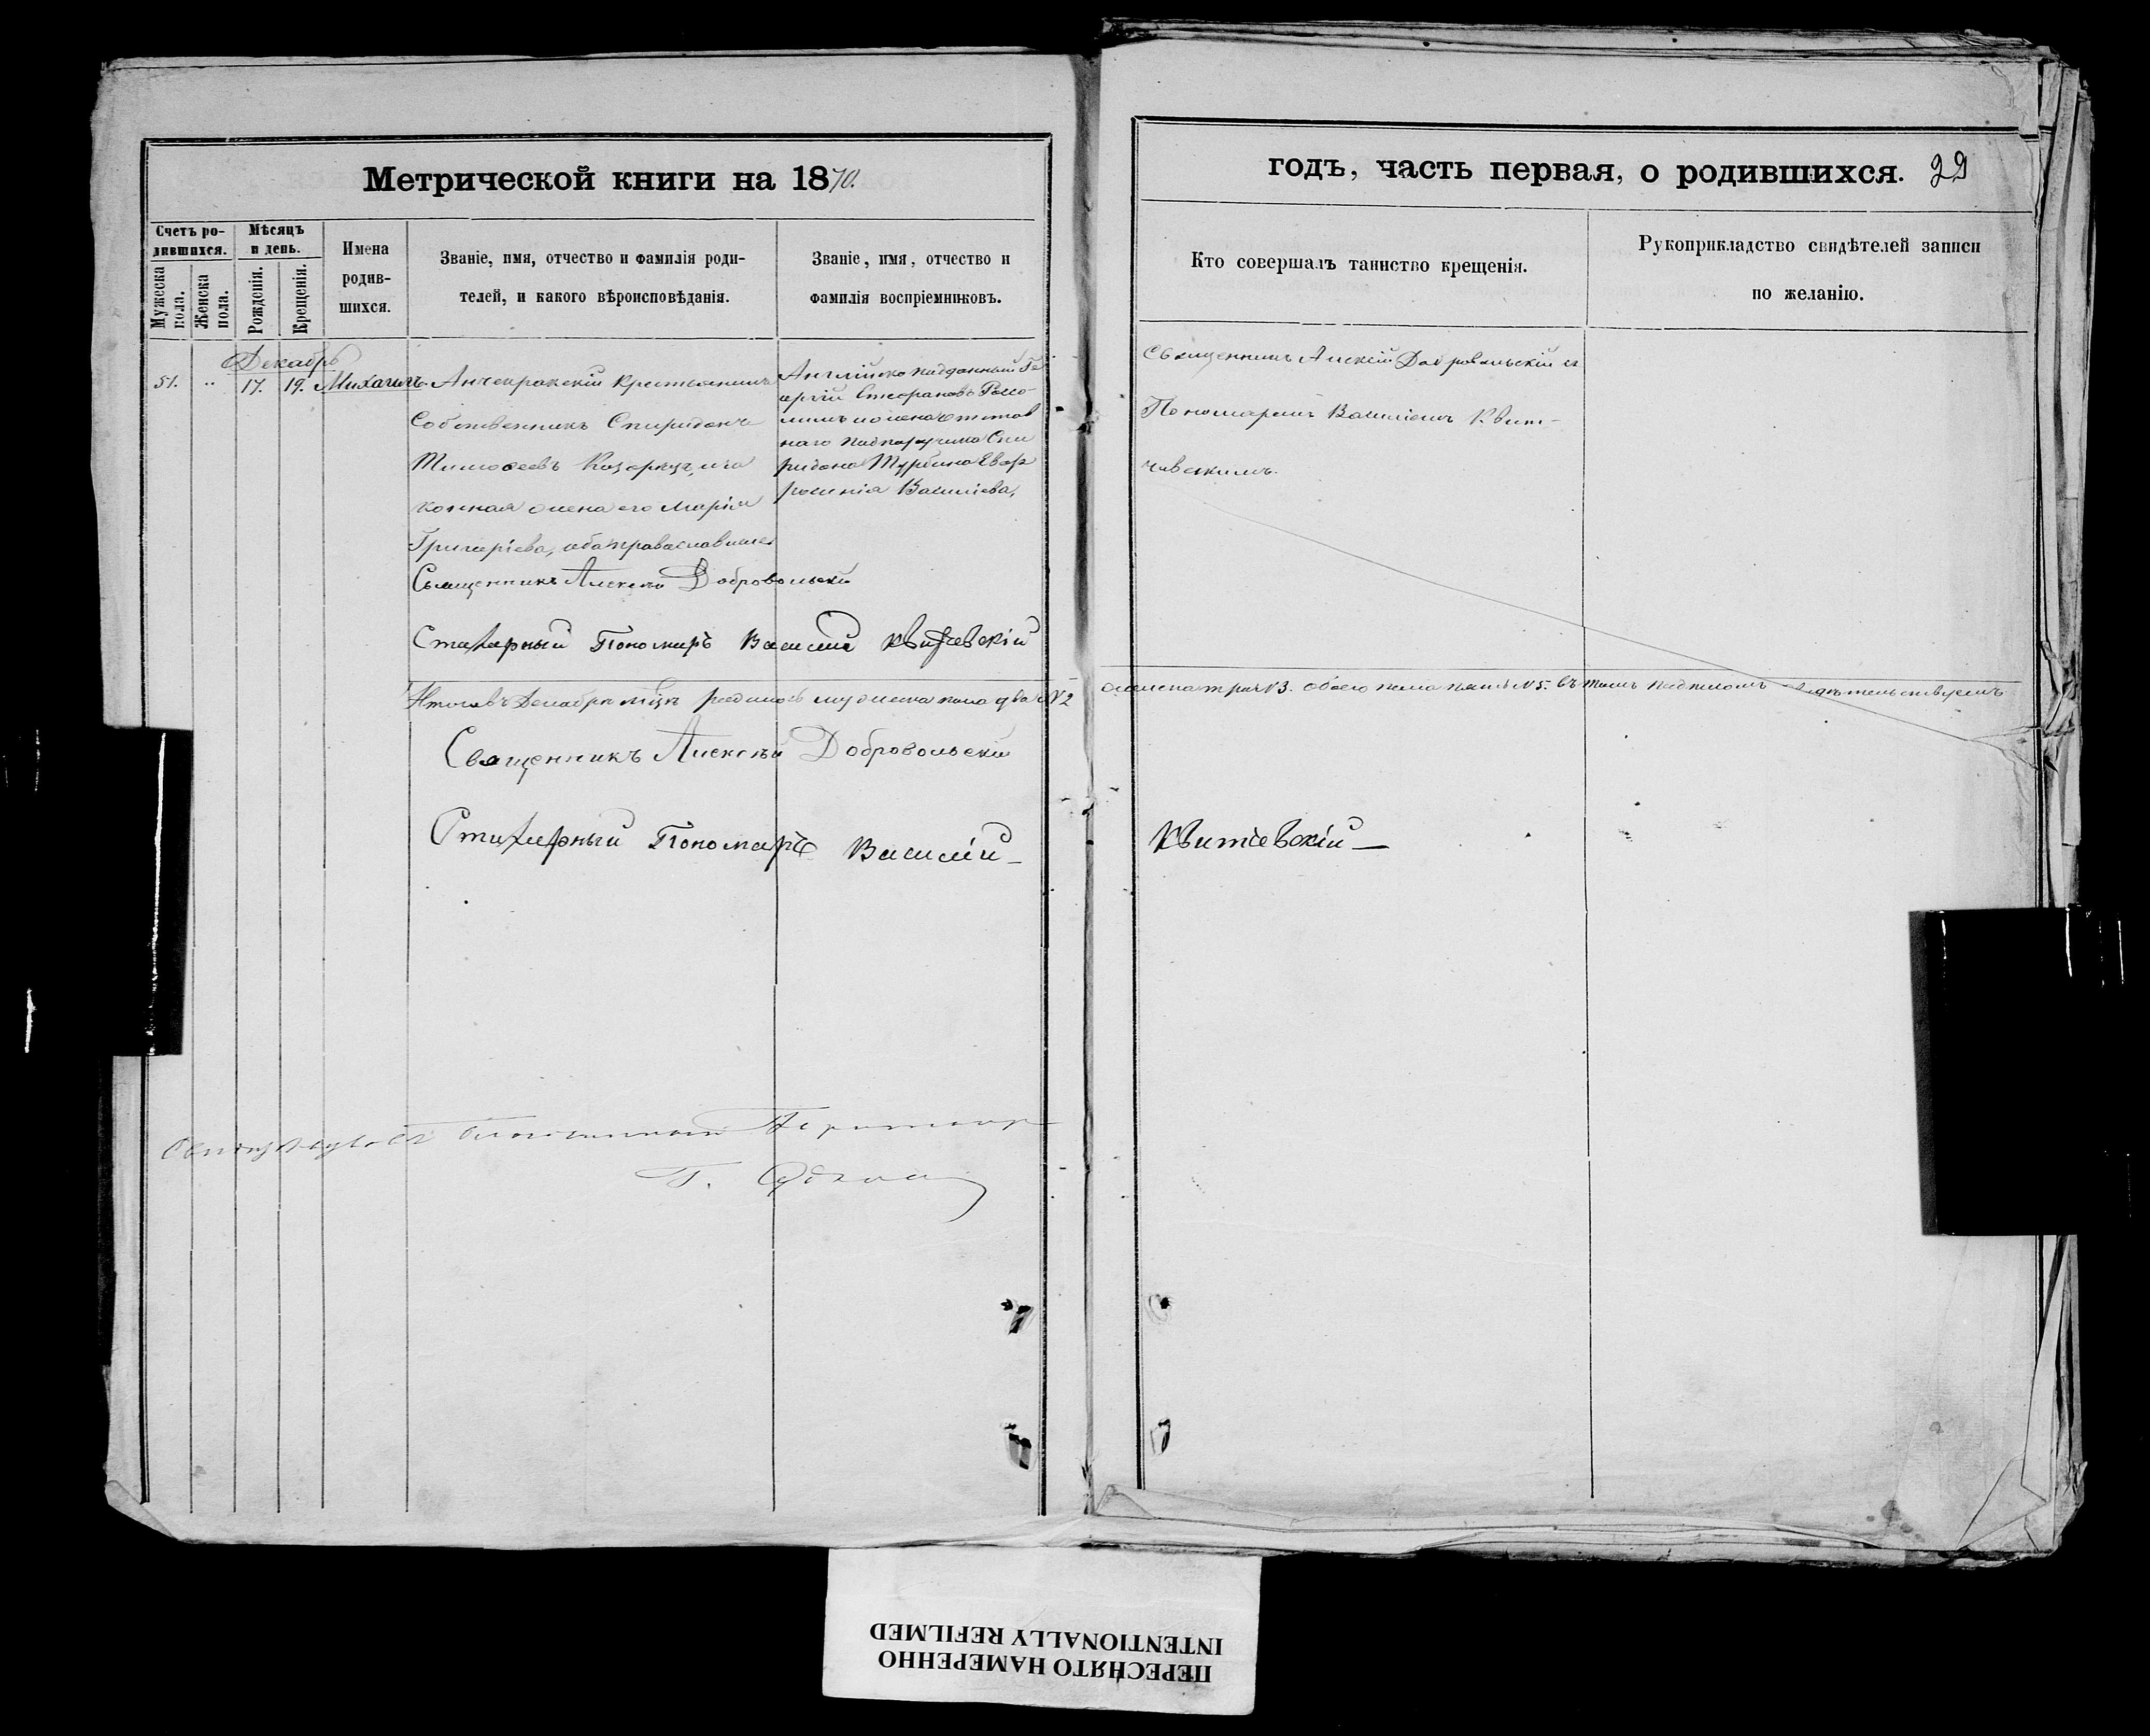 Метрической книги на 1870.
годъ, часть первая, о родившихся. 29
Счетъ ро-
дившихся.
Мужеска
пола.
Женска
пола.
Мѣсяцъ
и день.
Рожденія.
Крещенія.
Имена
родив-
шихся.
Званіе, имя, отчество и фамилія роди-
телей, и какого вѣроисповѣданія.
Званіе, имя, отчество и
фамилія воспріемниковъ.
Кто совершалъ таинство крещенія.
Рукоприкладство свидѣтелей записи
по желанію.
Декабрь
51. " 17. 19. Михаилъ
Крестьянинъ
Собственникъ Спиридонъ
Тимофеевъ
конная жена его Марія
Григоріева, оба православные
Священникъ Алексѣй Добровольскій
Стихарный Пономарь Василій Квитчевскій
Англійско подданный Ге
оргій Стефановъ
жена отстав
наго подпоручика Спи
ридона Турбина Евф
росинія Василіева,
Священникъ Алексій Добровольскій съ
Пономаремъ Василіемъ Квит-
чевскимъ.
Итого въ Декабрѣ мцѣ родилось мужеска пола два №2
женска три №3. обоего пола пять №5. въ томъ подписомъ свидѣтельствуемъ
Священникъ Алексѣй Добровольскій
Стихарный Пономарь Василій
Квитчевскій
ПЕРЕСНЯТО НАМЕРЕННО
INTENTIONALLY REFILMED